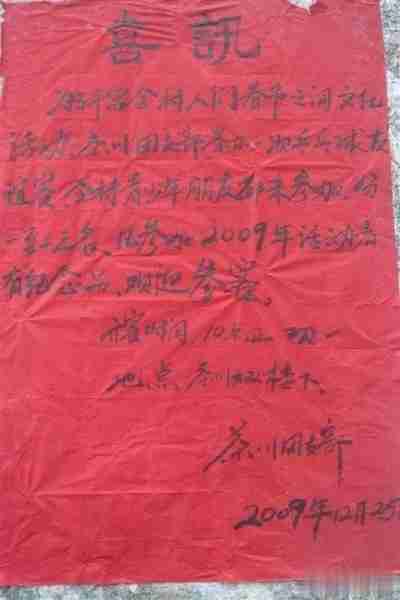 喜訊
全村人们春节之间文化
活动,茶川团支部举办,乒乓球友
谊赛,全村青少年朋友都来参加,
一至十三名,凡参加2009年活动者
有纪念品、欢迎参赛。
时间,初一
地点,茶川楼下、
茶川团支部
2009年12月25